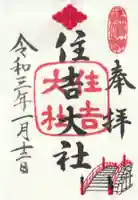 奉拝
住吉大社
住吉
大社
令和三年一月十三日